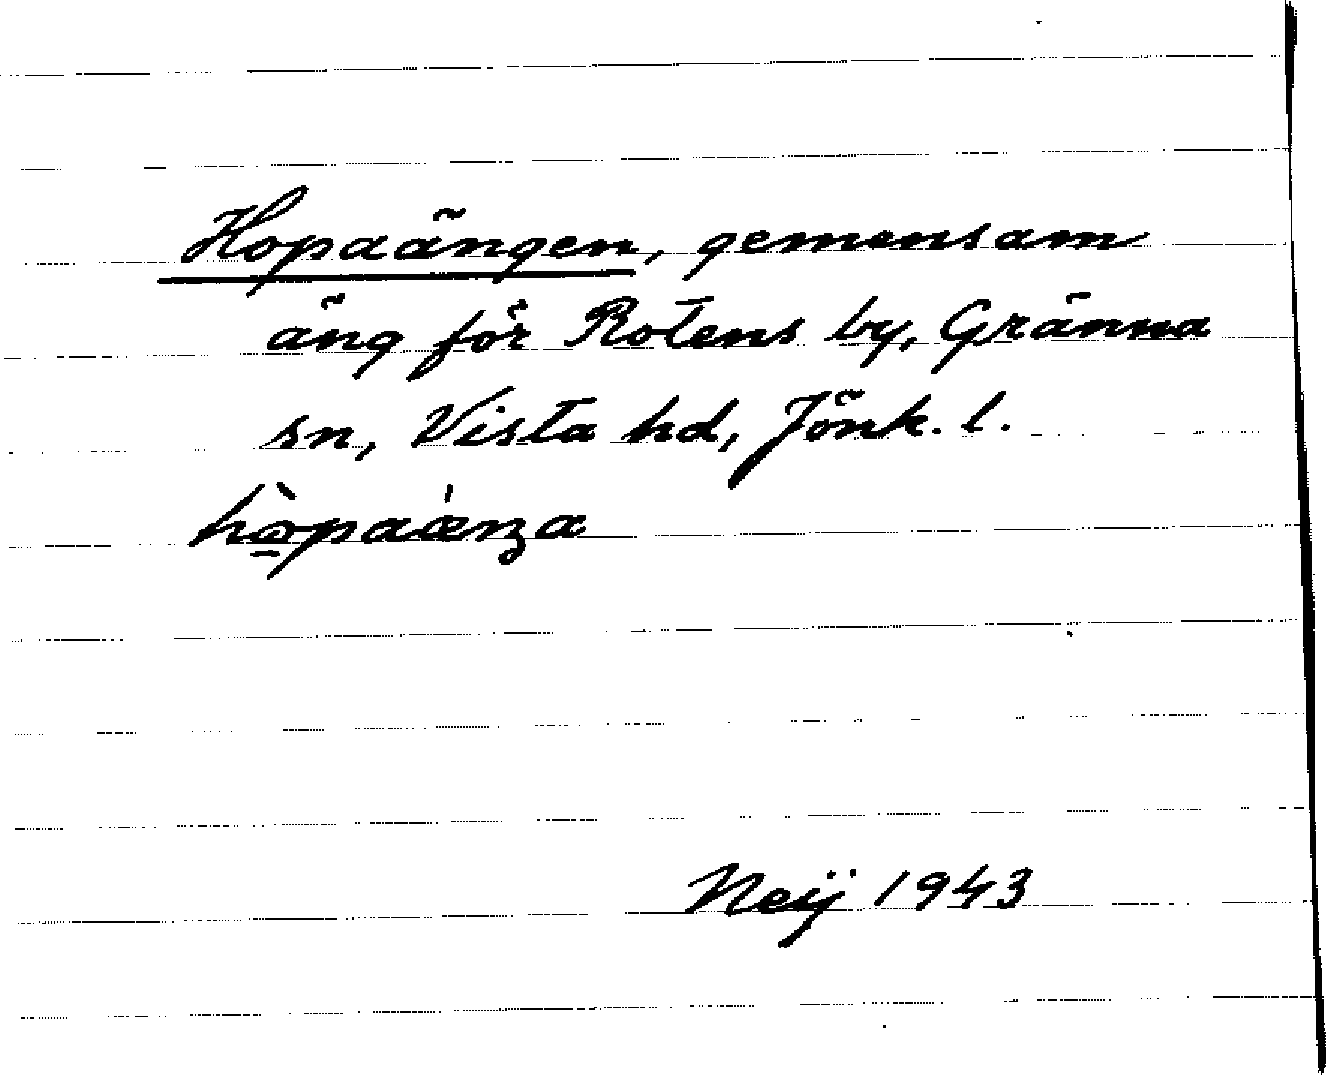 Hopaängen, gemensam
äng för Rotens by, Gränna
sn, Vista hd, Jönk. l.
hò̱paæ̀nʒa
Neij 1943